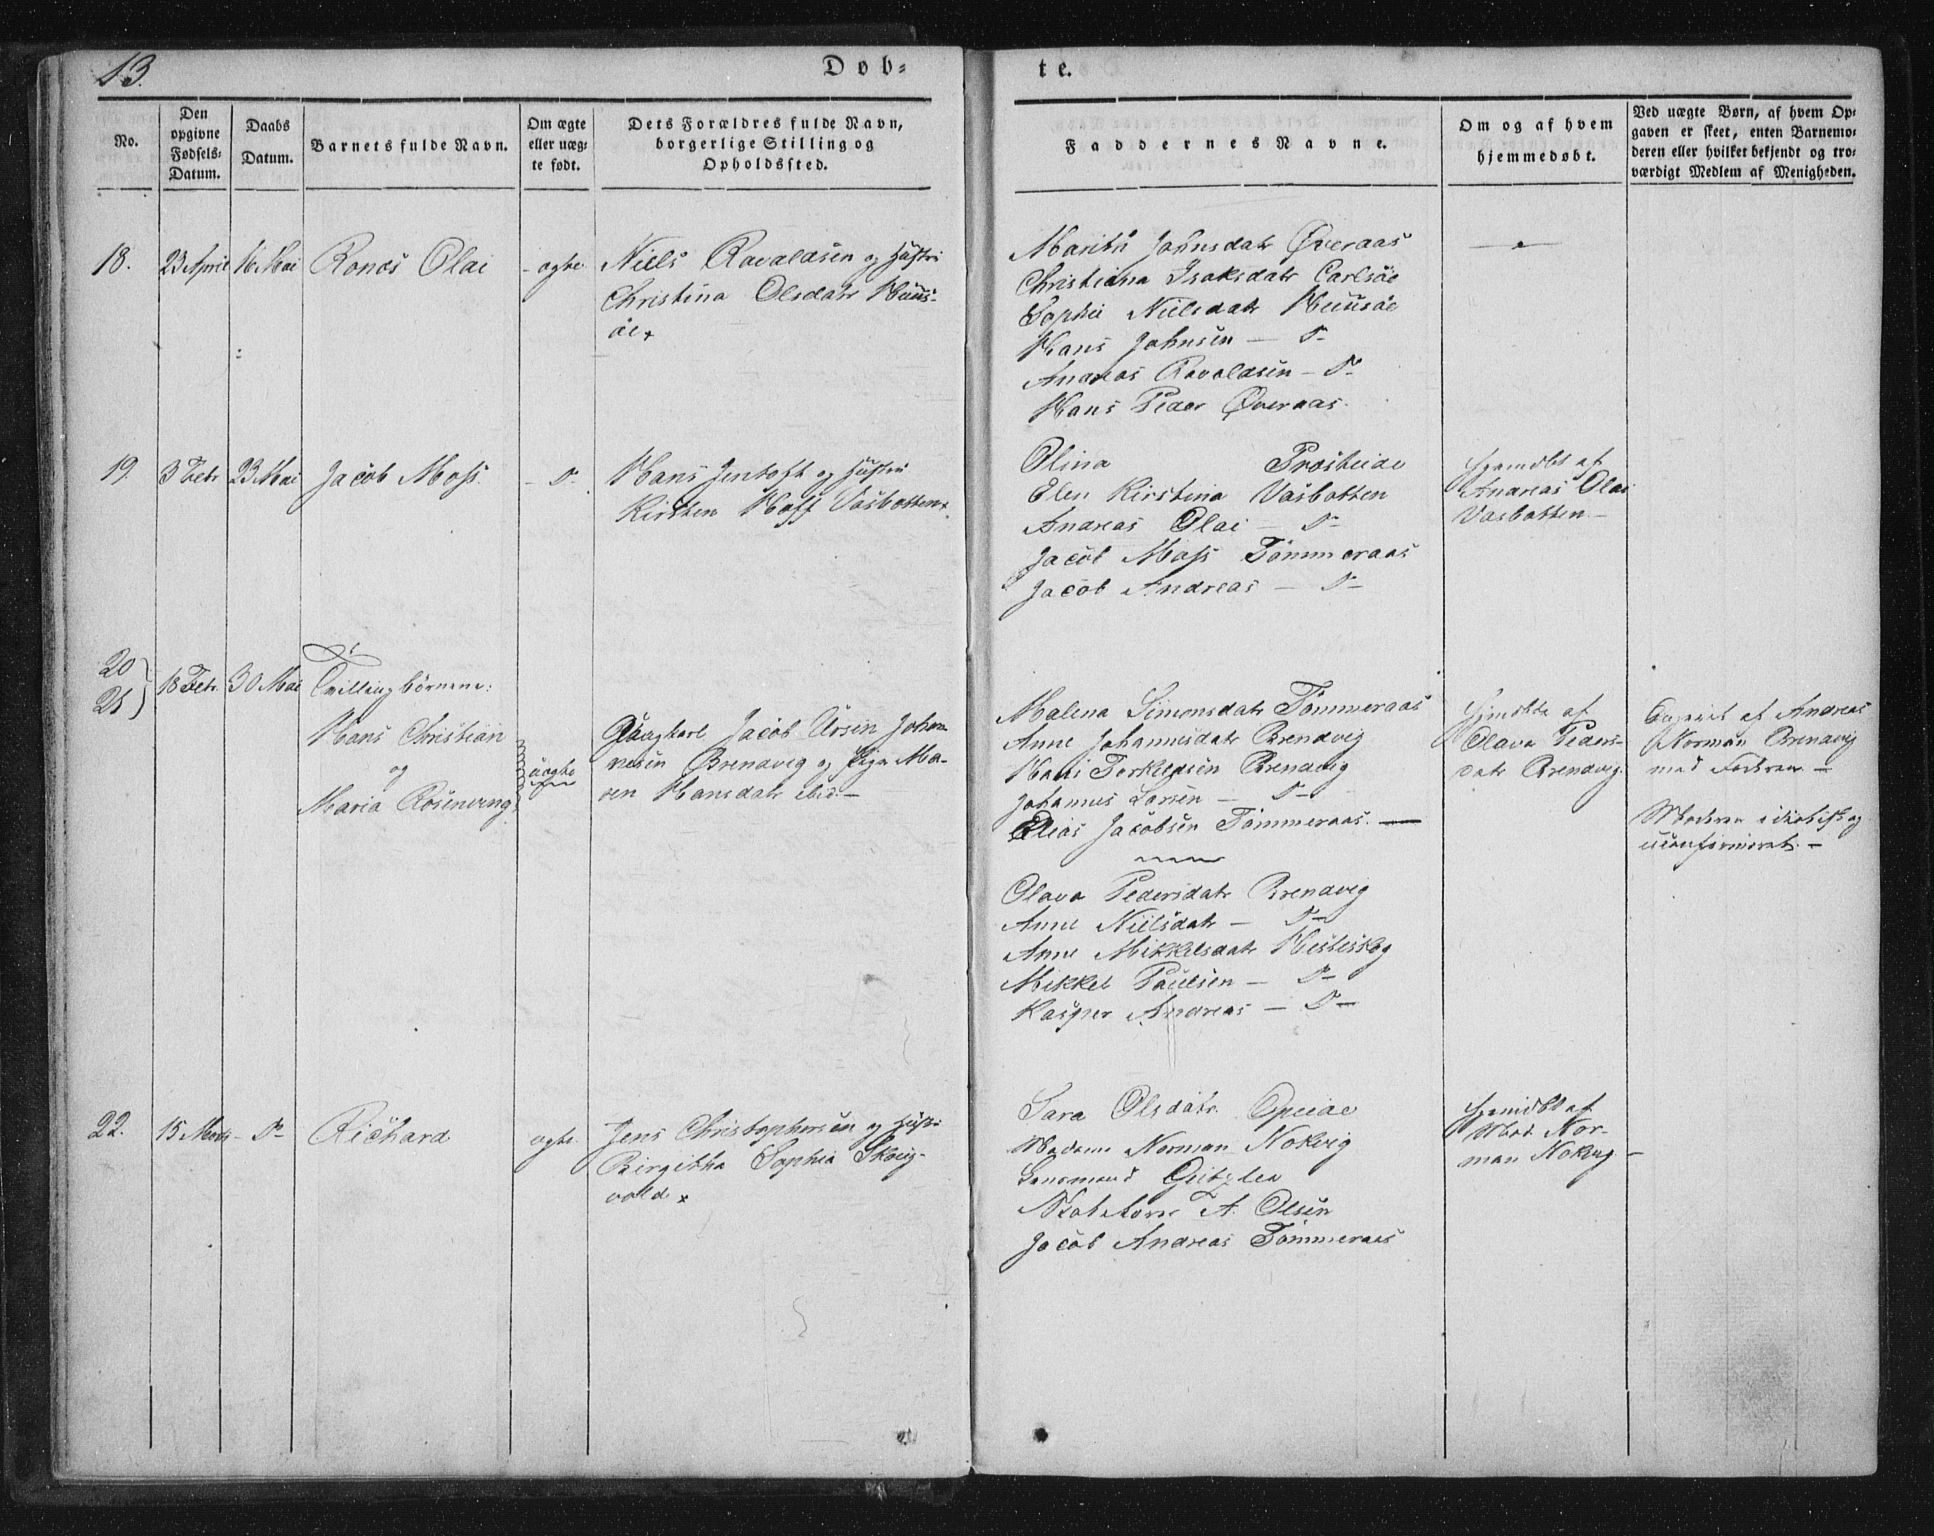 13.
Døb=
te.
No.
Den
opgivne
Fødsels=
Datum.
Daabs
Datum.
Barnets fulde Navn.
Om ægte
eller uæg=
te født.
Dets Forældres fulde Navn,
borgerlige Stilling og
Opholdssted.
Faddernes Navne.
Om og af hvem
hjemmedøbt.
Ved uægte Børn, af hvem Op=
gaven er skeet, enten Barnemo=
deren eller hvilket bekjendt og tro=
værdigt Medlem af Menigheden.
18.
23 April
16 Mai
Olai
ægte
Niels Ravaldsen og Hustru
Christina Olsdatr Huus-
øe
Johnsdatr Øveraas
Christiana Isaksdatr Carlsøe
Sophie Nielsdatr Huusøe
Hans Johnsen — D-
Andreas Ravaldsen — D-
Hans Peder Øveraas
19.
3 Febr
23 Mai
Jacob Moss.
D-
Hans Jentoft og Hustru
Kirsten Hoff Vasbotten
Olina Præsteide
Elen Kirstina Vasbotten
Andreas Olai — D-
Jacob Moss Tømmeraas
Jacob Andreas — D-
Hjemdbt af
Andreas Olai
Vasbotten —
20
21
18 Febr
30 Mai
Tvillingbørnene:
Hans Christian
og
Maria Rosenving
uægte
Ungkarl Jacob Ursin Johan-
nesen Brendvig og Pige Ma-
ren Hansdatr ibid: —
Malena Simonsdatr Tømmeraas
Anne Johannesdatr Brendvig
Hans Torkeldsen Brendvig
Johannes Larsen — D-
Elias Jacobsen Tømmeraas. —
Olava Pedersdatr Brendvig
Anne Nielsdatr — D-
Anne Mikkelsdatr Hesteskog
Mikkel Paulsen — D-
Kasper Andreas — D-
Hjmdbte af
Olava Peders-
datr Brendvig.
Opgivet af Andreas
Norman Brendvig
med Fadren —
Modren idiotisk og
uconfirmeret. —
22.
15 Marts
D-
Richard
ægte
Jens Christophersen og Hustru
Birgitha Sophia Skog-
vold
Sara Olsdatr Opeide
Madame Norman Nokvig
Lensmand
A. Olsen
Jacob Andreas Tømmeraas
Hjemdbt af
Mad. Nor-
man Nokvig —